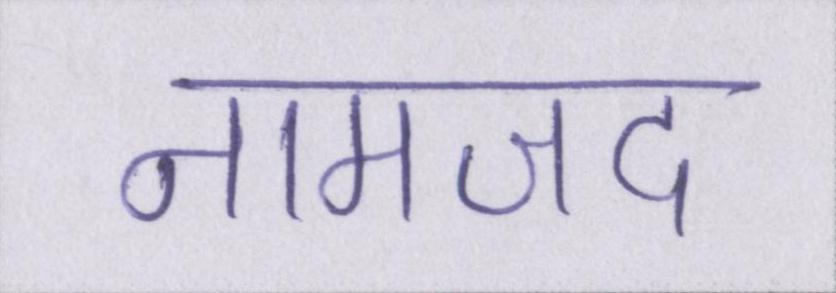 नामजद